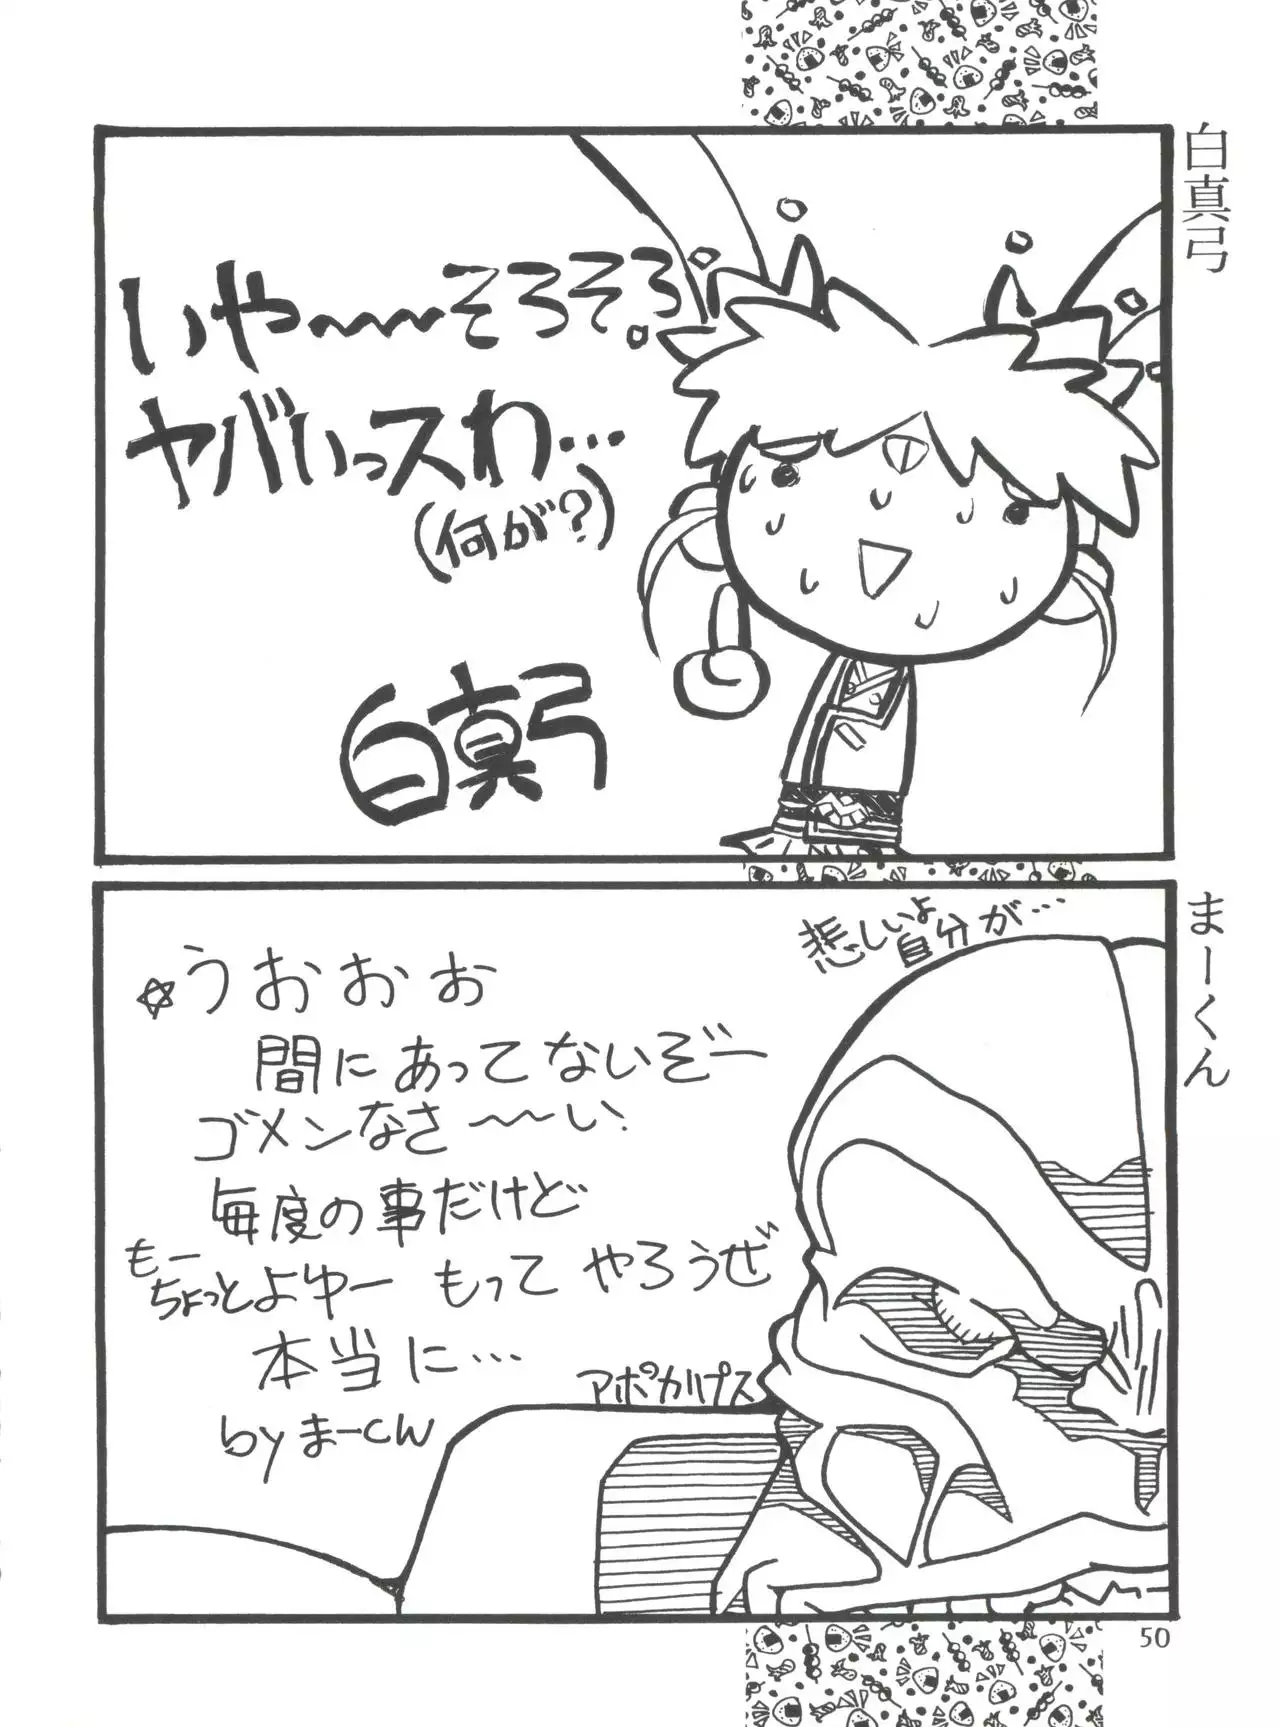 白真弓
いや〜〜〜そろそろ
ヤバいっスわ…
(何が?)
白真弓
まーくん
悲しいよ
自分が…
☆うおおぉ
間にあってないぞー
ゴメンなさ〜〜い
毎度の事だけど
もー
ちょっとよゆー もって やろうぜ
本当に…
アポカリプス
by まーくん
50